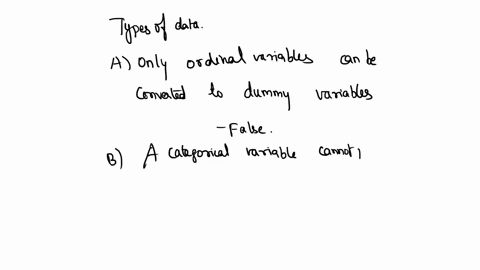 Types of data.
A) Only ordinal variables can be
converted to dummy variables
- False.
B) A categorical variable cannot,